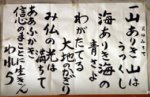 一山あり 山は
うつくし
海あり 海の
青さよ
わがたてる
大地のかぎり
み仏の光は
満て
ああふかぎ
信心のまことに生きん
われら